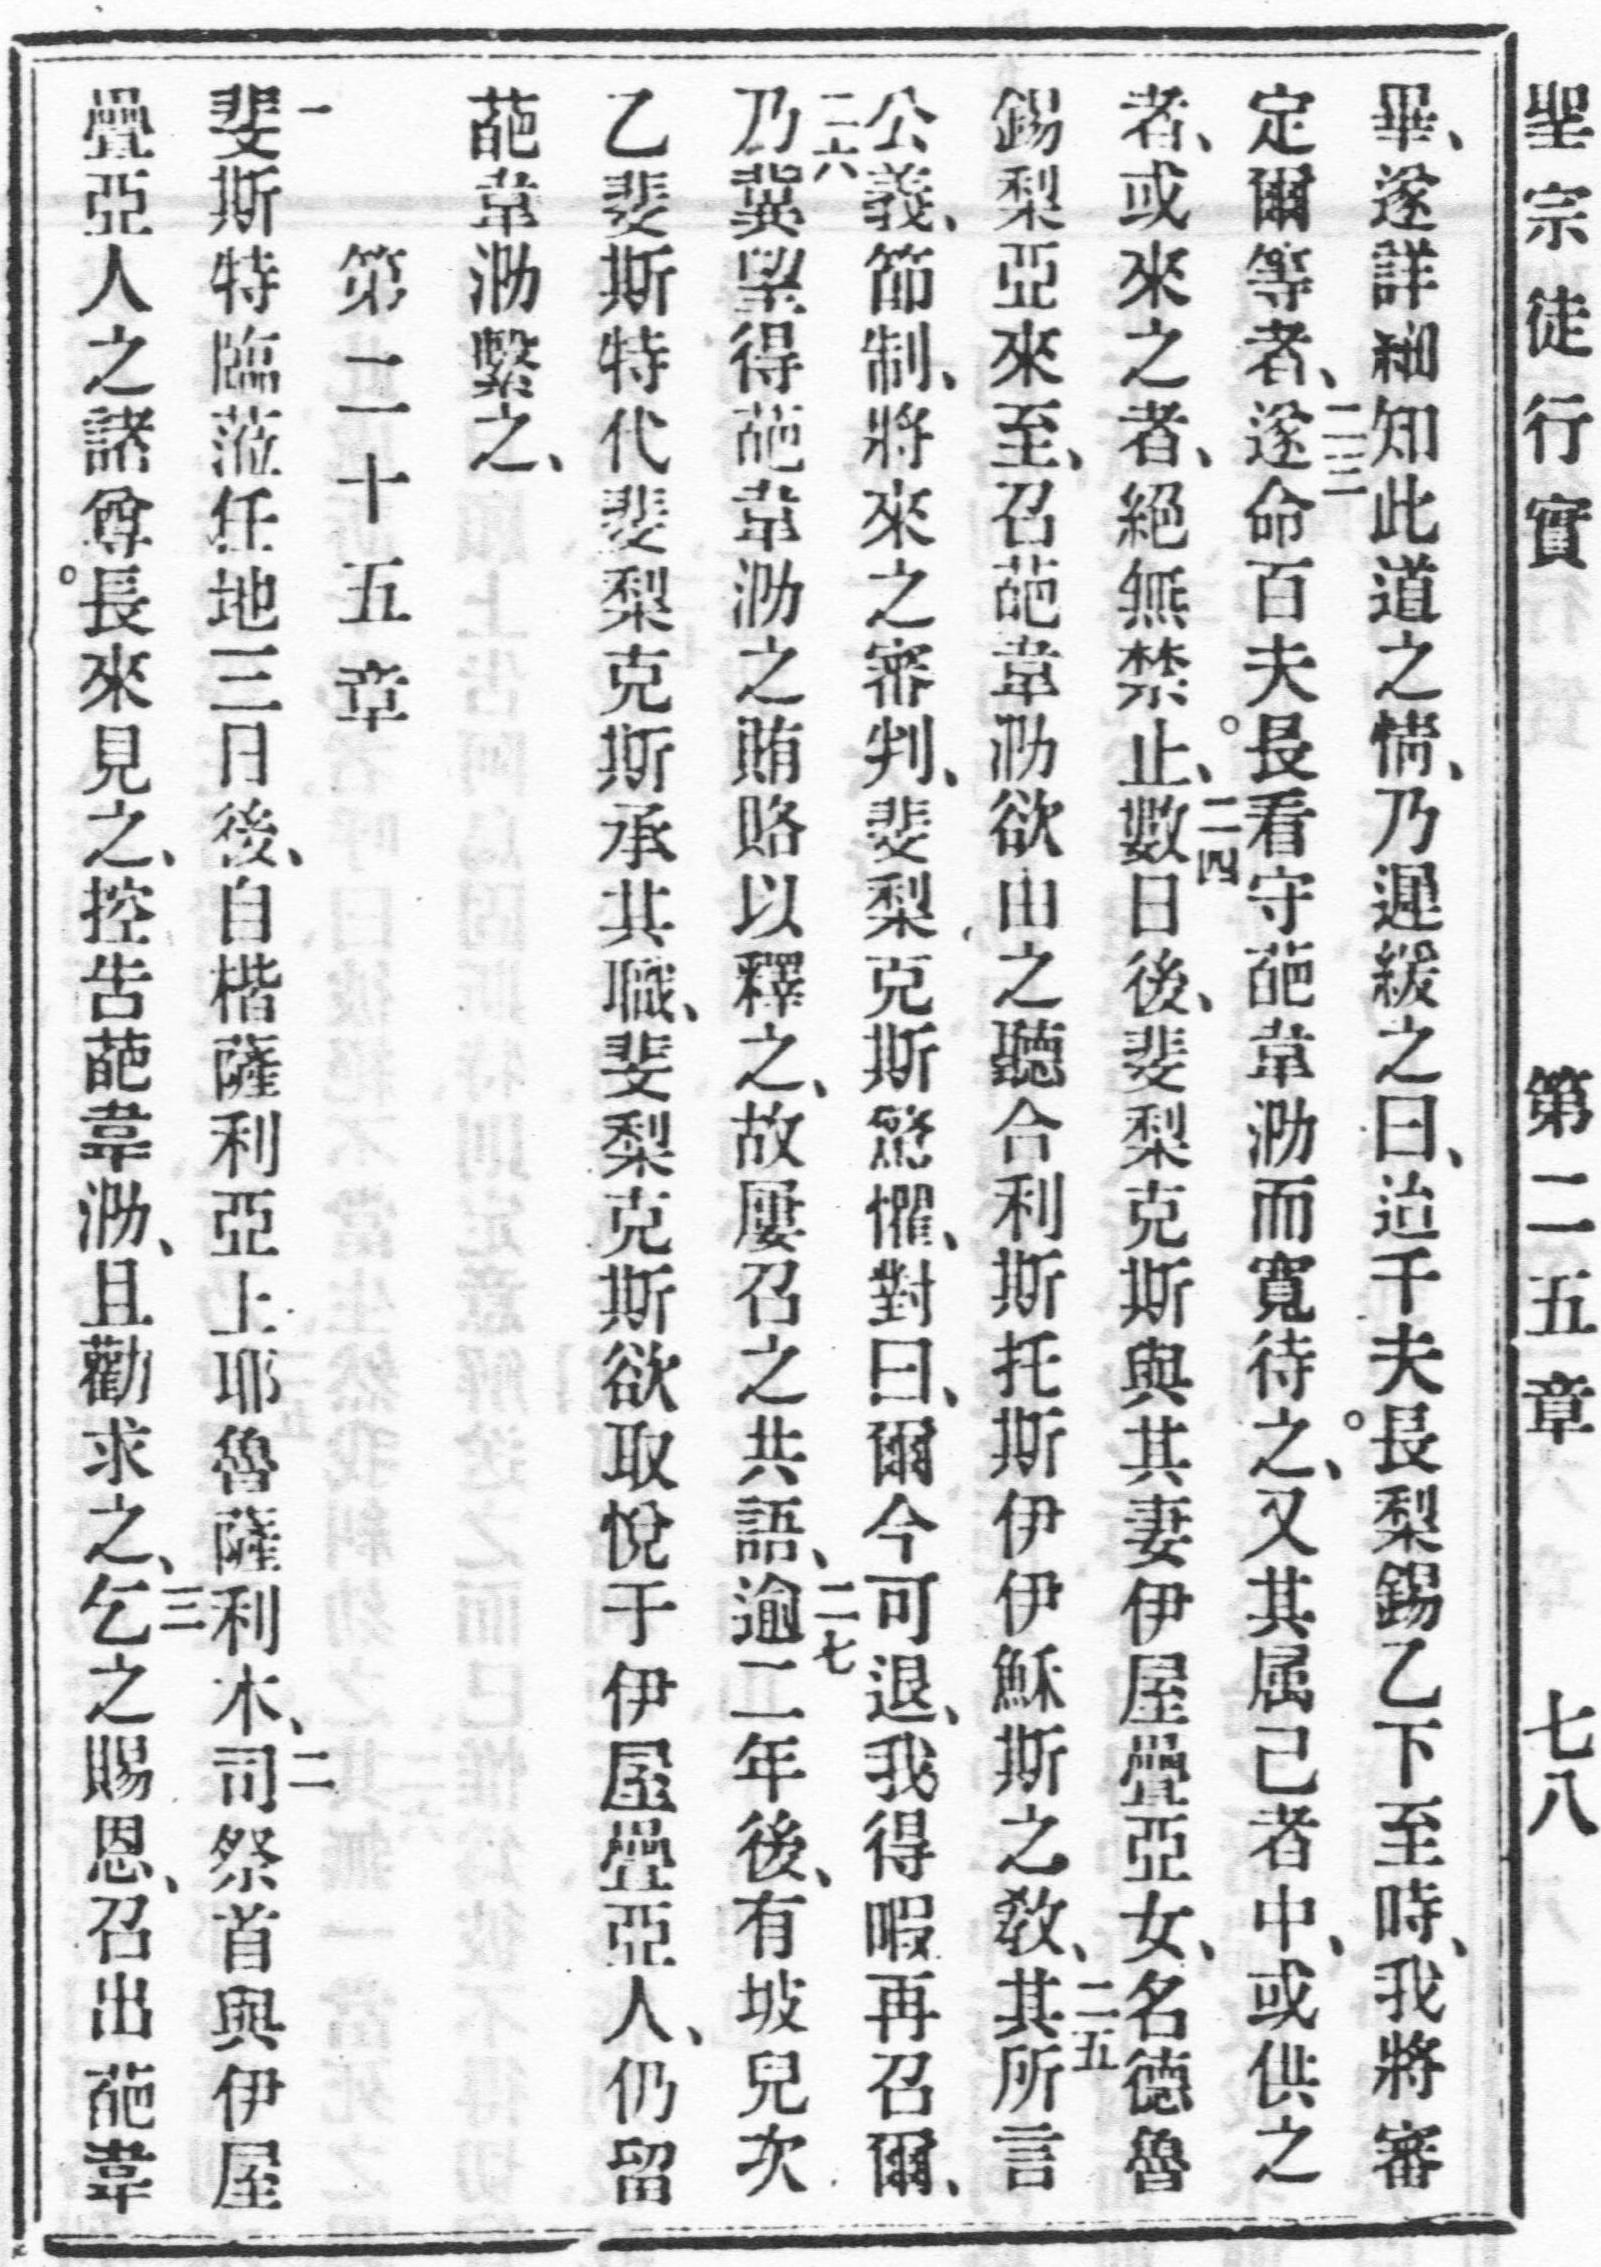 聖宗徒行實 第二五章 七八
畢、遂詳細知此道之情、乃遲緩之曰、迨千夫長。梨錫乙下至時、我將審
定爾等者、二三遂命百夫長。看守葩韋泐而寬待之、又其属己者中、或供之
者、或來之者、絕無禁止、二四數日後、斐梨克斯與其妻伊屋疊亞女、名德魯
錫梨亞來至、召葩韋泐欲由之聽合利斯托斯伊伊穌斯之教、二五其所言
公義、節制、將來之審判、斐梨克斯驚懼、對曰、爾今可退、我得暇再召爾、
二六乃冀望得葩韋泐之賄賂以釋之、故屢召之共語、二七逾二年後、有坡兒次
乙斐斯特代斐梨克斯承其職、斐梨克斯欲取悅于伊屋疊亞人、仍留
葩韋泐繫之、
第二十五章
一斐斯特臨蒞任地三日後、自楷薩利亞上耶魯薩利木、二司祭首與伊屋
疊亞人之諸尊長。來見之、控告葩韋泐、且勸求之、三乞之賜恩、召出葩韋